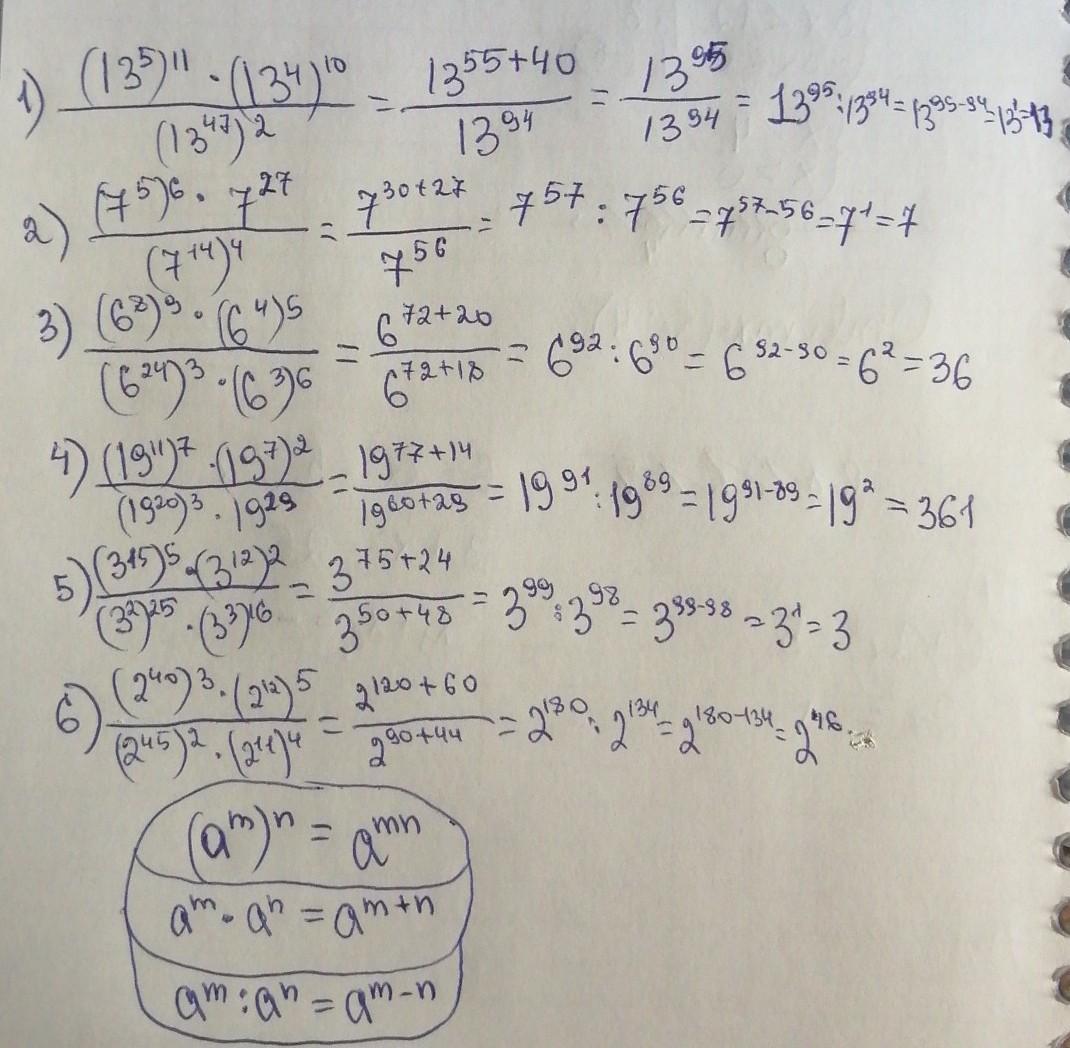 1) \frac{(13^5)^{11} · (13^4)^{10}}{(13^{47})^2} = \frac{13^{55+40}}{13^{94}} = \frac{13^{95}}{13^{94}} = 13^{95} : 13^{94} = 13^{95-94} = 13^1 = 13
2) \frac{(7^5)^6 · 7^{27}}{(7^{14})^4} = \frac{7^{30+27}}{7^{56}} = 7^{57} : 7^{56} = 7^{57-56} = 7^1 = 7
3) \frac{(6^8)^9 · (6^4)^5}{(6^{24})^3 · (6^3)^6} = \frac{6^{72+20}}{6^{72+18}} = 6^{92} : 6^{90} = 6^{92-90} = 6^2 = 36
4) \frac{(19^{11})^7 · (19^7)^2}{(19^{20})^3 · 19^{29}} = \frac{19^{77+14}}{19^{60+29}} = 19^{91} : 19^{89} = 19^{91-89} = 19^2 = 361
5) \frac{(3^{15})^5 · (3^{12})^2}{(3^2)^{25} · (3^3)^{16}} = \frac{3^{75+24}}{3^{50+48}} = 3^{99} : 3^{98} = 3^{99-98} = 3^1 = 3
6) \frac{(2^{40})^3 · (2^{12})^5}{(2^{45})^2 · (2^{11})^4} = \frac{2^{120+60}}{2^{90+44}} = 2^{180} : 2^{134} = 2^{180-134} = 2^{46}
(a^m)^n = a^{mn}
a^m · a^n = a^{m+n}
a^m : a^n = a^{m-n}